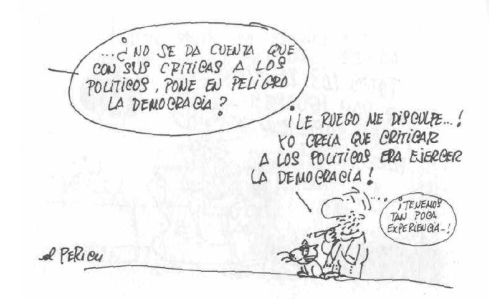 ...¿NO SE DA CUENTA QUE
CON SUS CRITICAS A LOS
POLITICOS, PONE EN PELIGRO
LA DEMOCRACIA?
¡LE RUEGO ME DISCULPE...!
YO CREIA QUE CRITICAR
A LOS POLITICOS ERA EJERCER
LA DEMOCRACIA!
¡TENEMOS
TAN POCA
EXPERIENCIA..!
el PERICH